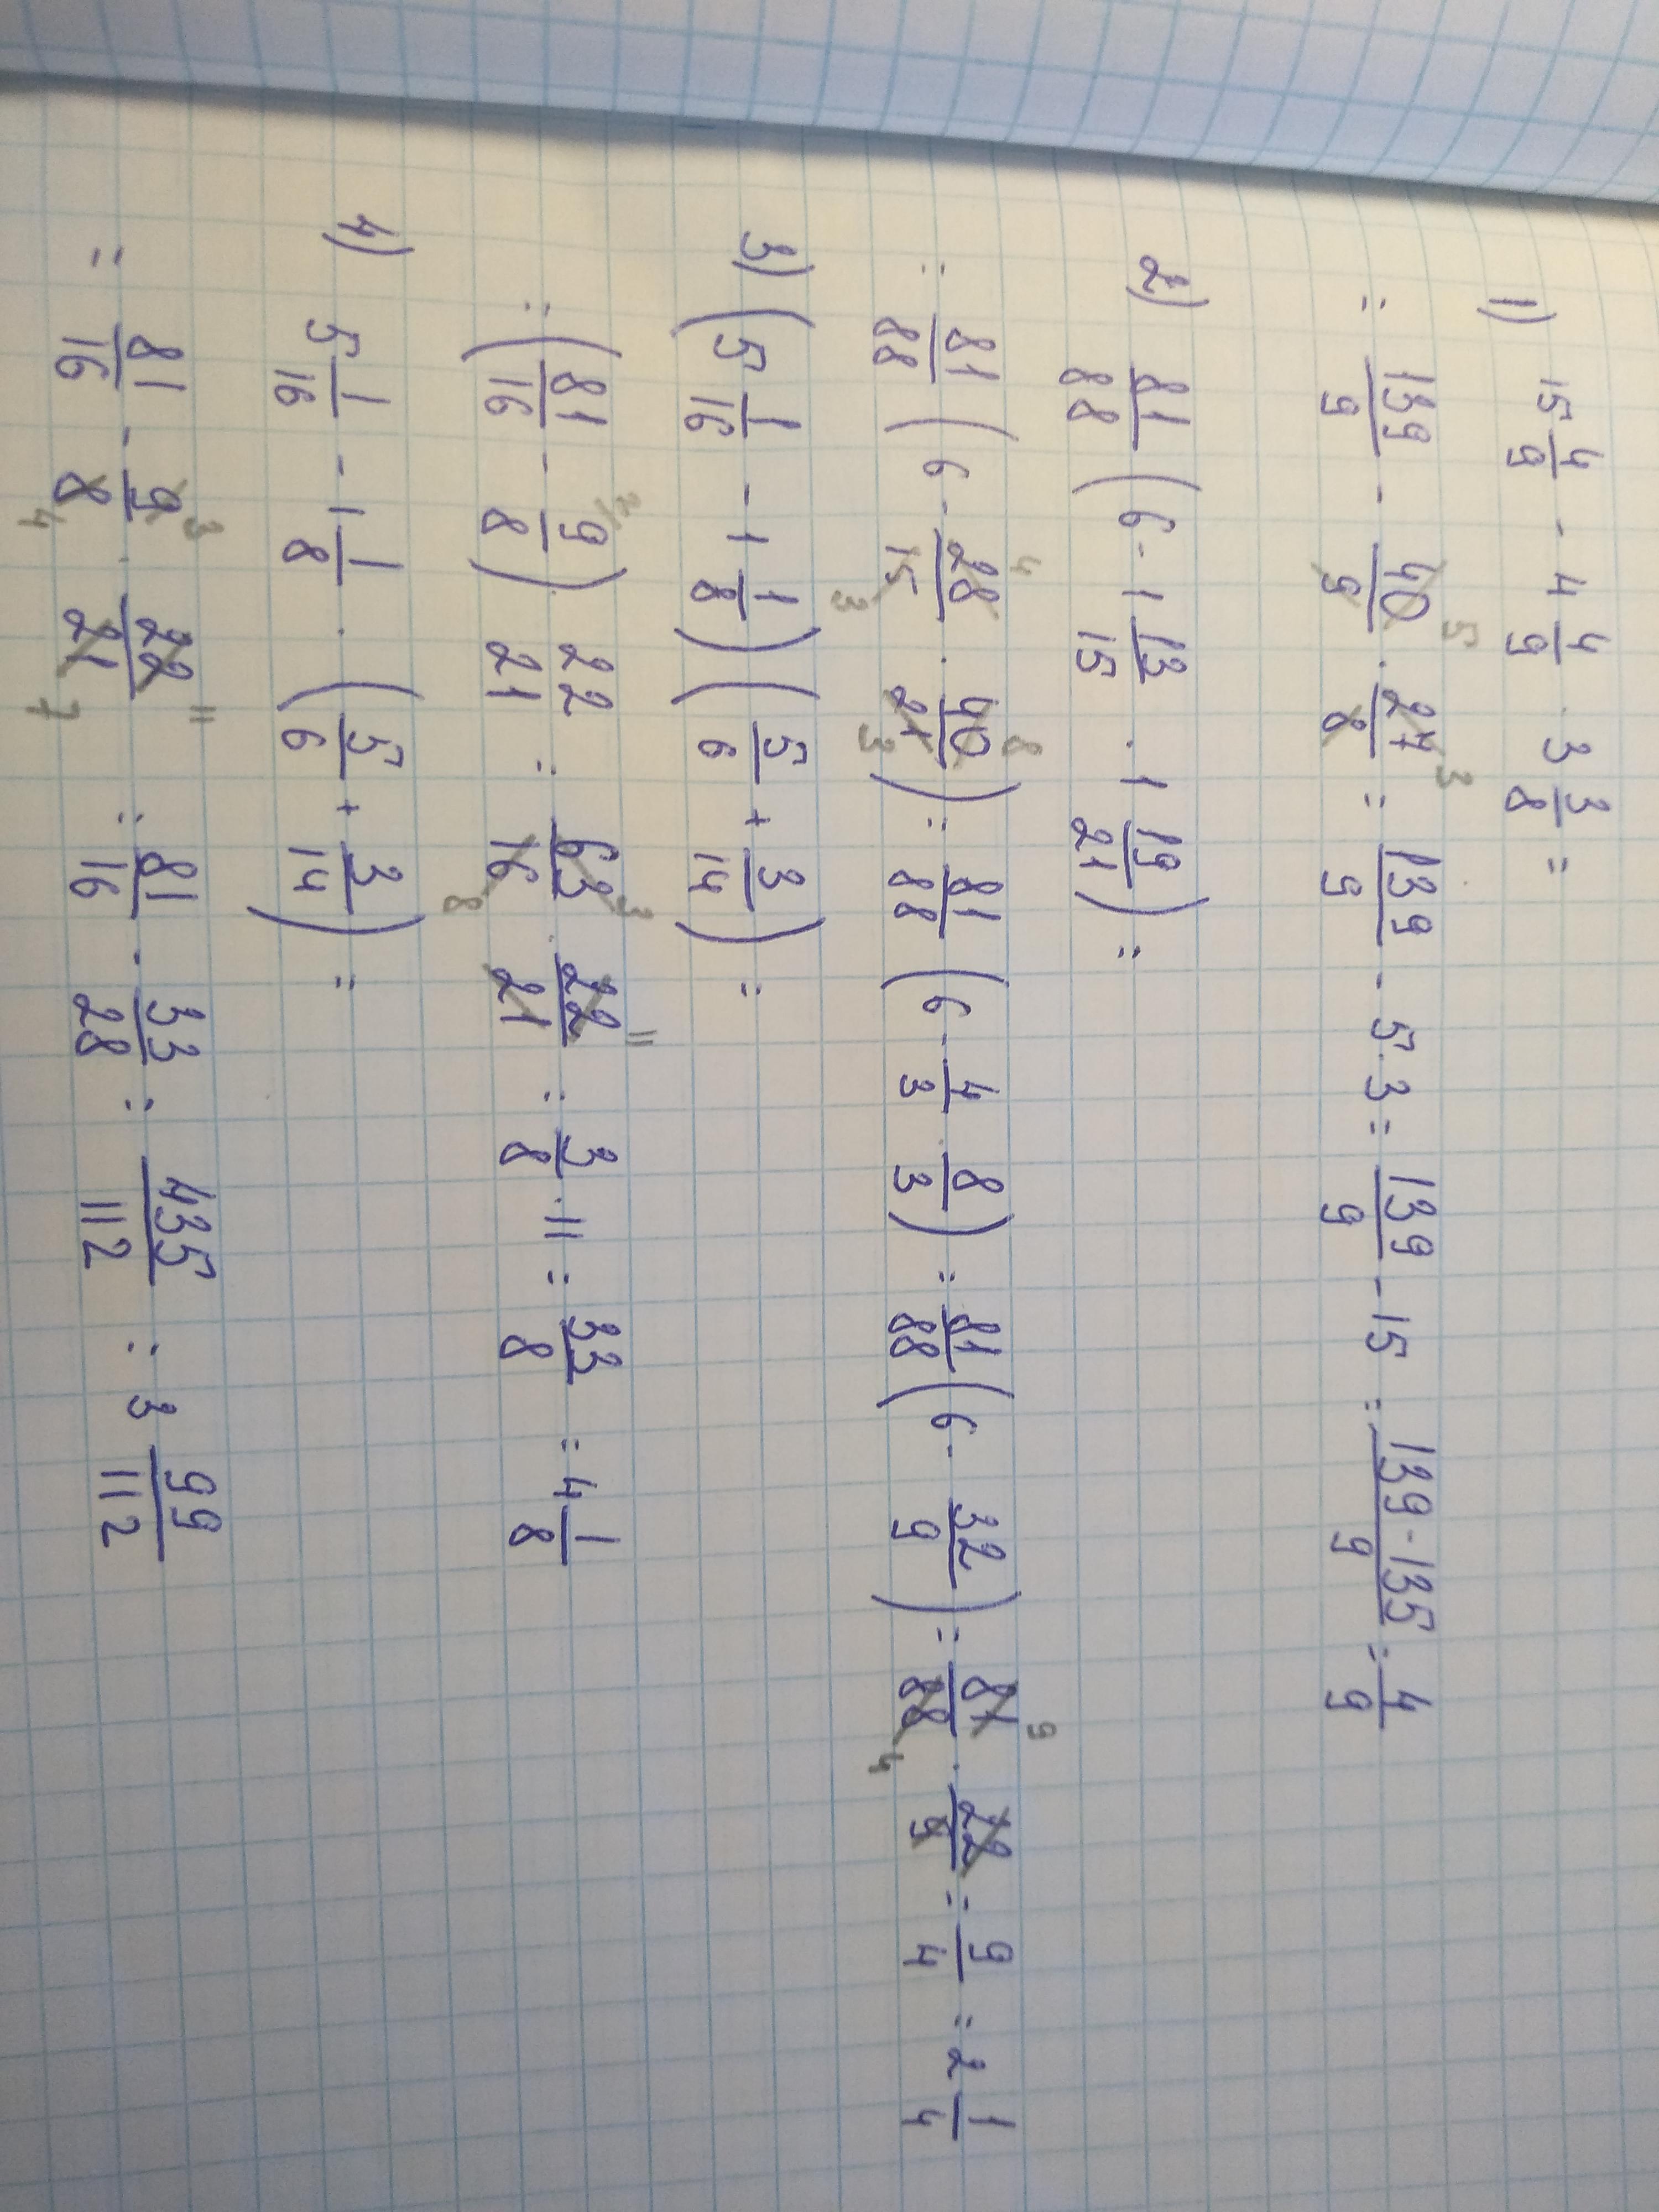 1) 15 4/9 - 4 4/9 · 3 3/8 =
= 139/9 - 40/9 · 27/8 = 139/9 - 5·3 = 139/9 - 15 = (139-135)/9 = 4/9
2) 81/88 (6 - 1 13/15 · 1 19/21) =
= 81/88 (6 - 28/15 · 40/21) = 81/88 (6 - 4/3 · 8/3) = 81/88 (6 - 32/9) = 81/88 · 22/9 = 9/4 = 2 1/4
3) (5 1/16 - 1 1/8) (5/6 + 3/14) =
= (81/16 - 9/8) · 22/21 = 63/16 · 22/21 = 3/8 · 11 = 33/8 = 4 1/8
4) 5 1/16 - 1 1/8 · (5/6 + 3/14) =
= 81/16 - 9/8 · 22/21 = 81/16 - 33/28 = 435/112 = 3 99/112